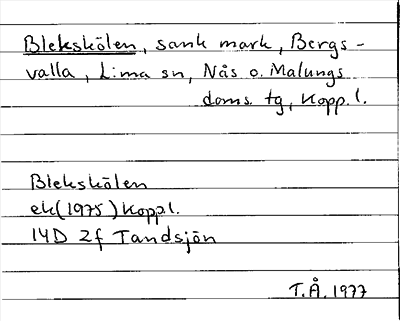 Blekskölen, sank mark, Bergs-
valla, Lima sn, Nås o. Malungs
doms. tg, Kopp.l.
Blekskölen
ek(1975) Koppl.
14D 2f Tandsjön
T.Å. 1977